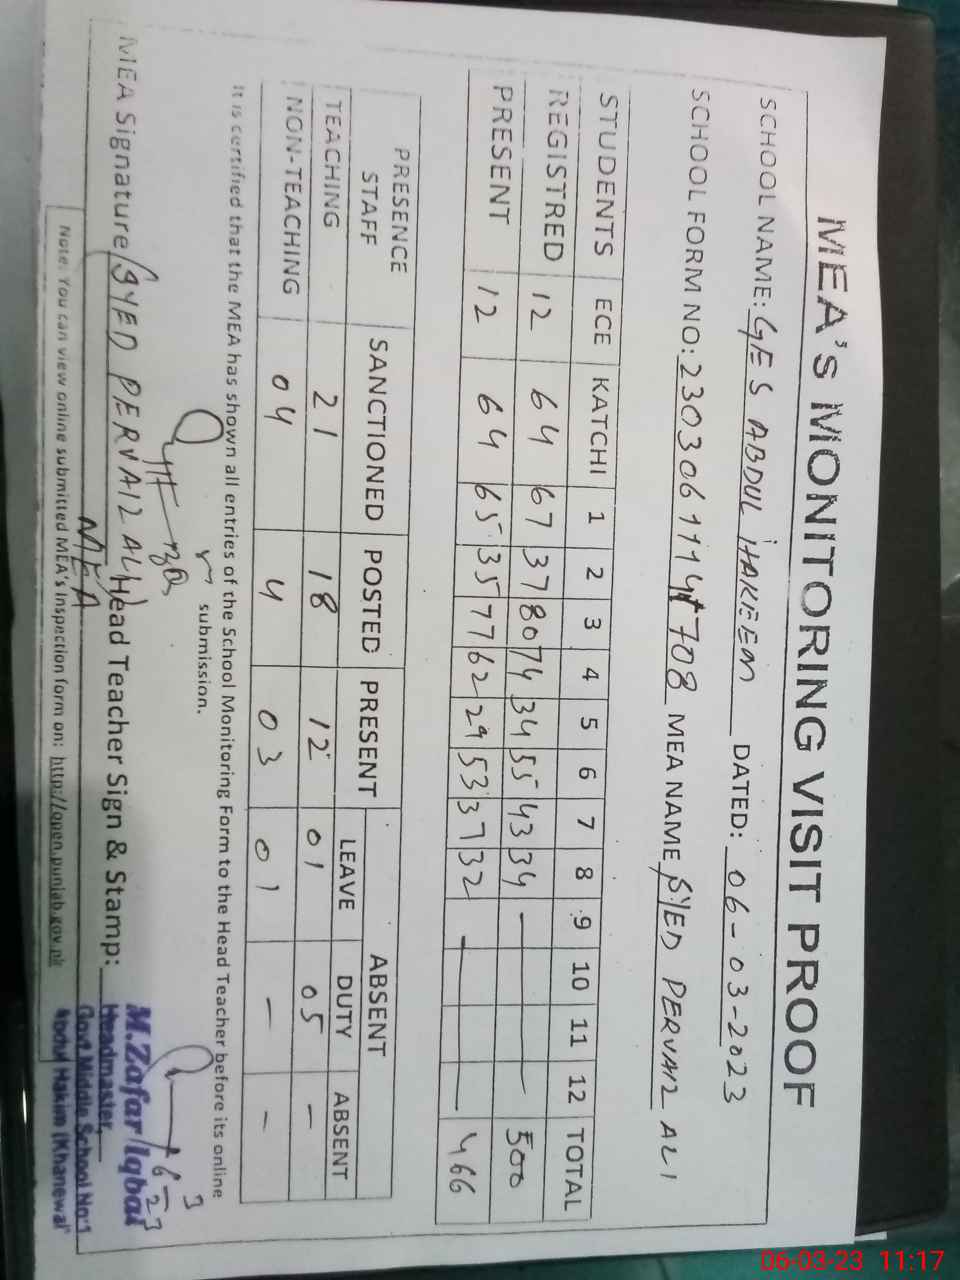 MEA'S MIONITORING VISIT PROOF
SCHOOL NAME: GES ABDUL HAKEEM DATED: 06-03-2023
SCHOOL FORM NO: MEA NAME SYED PERVAIZ ALI
STUDENTS ECE KATCHI 1 2 3 4 5 6 7 8 9 10 11 12 TOTAL
REGISTRED 12 64 67 37 80 74 34 55 43 34 — 500
PRESENT 12 64 65 35 77 62 29 53 37 32 — 466
PRESENCE STAFF SANCTIONED POSTED PRESENT ABSENT
LEAVE DUTY ABSENT
TEACHING 21 18 12 01 05 -
NON-TEACHING 04 4 03 01 - -
It is certified that the MEA has shown all entries of the School Monitoring Form to the Head Teacher before its online
submission.
MEA Signature SYED PERVAIZ ALI Head Teacher Sign & Stamp:
MEA
M.Zafar Iqbal
Headmaster,
Govt Middle School No:1
Abdul Hakim (Khanewal)
Note: You can view online submitted MEA's Inspection form on: http://open.punjab.gov.pk
06-03-23 11:17